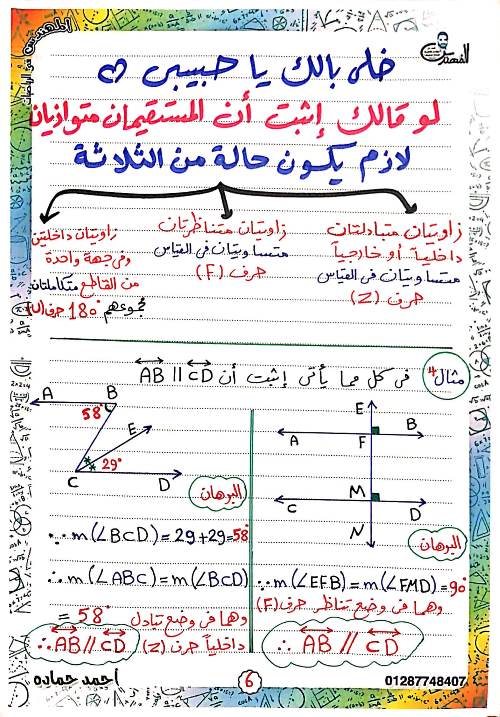 المهندس فى الرياضيات
المهندس
خلى بالك يا حبيبى
لو قالك إثبت أن المستقيمان متوازيان
لازم يكون حالة من الثلاثة
زاويتان متبادلتان
داخلياً أو خارجياً
متساويتان فى القياس
حرف (Z)
زاويتان متناظرتان
متساويتان فى القياس
حرف (F)
زاويتان داخليتين
وفى جهة واحدة
من القاطع متكاملتان
مجموعهم 180° حرف (U)
مثال 4 فى كل مما يأتى إثبت أن AB // CD
E
A F B
C M D
N
البرهان
∵ m(∠EFB) = m(∠FMD) = 90°
وهما فى وضع تناظر حرف (F)
∴ AB // CD
A B
58°
E
29°
C D
البرهان
∵ m(∠BCD) = 29+29=58°
∴ m(∠ABC) = m(∠BCD)
= 58° وهما فى وضع تبادل
داخلياً حرف (Z)
∴ AB // CD
احمد حماده
6
01287748407